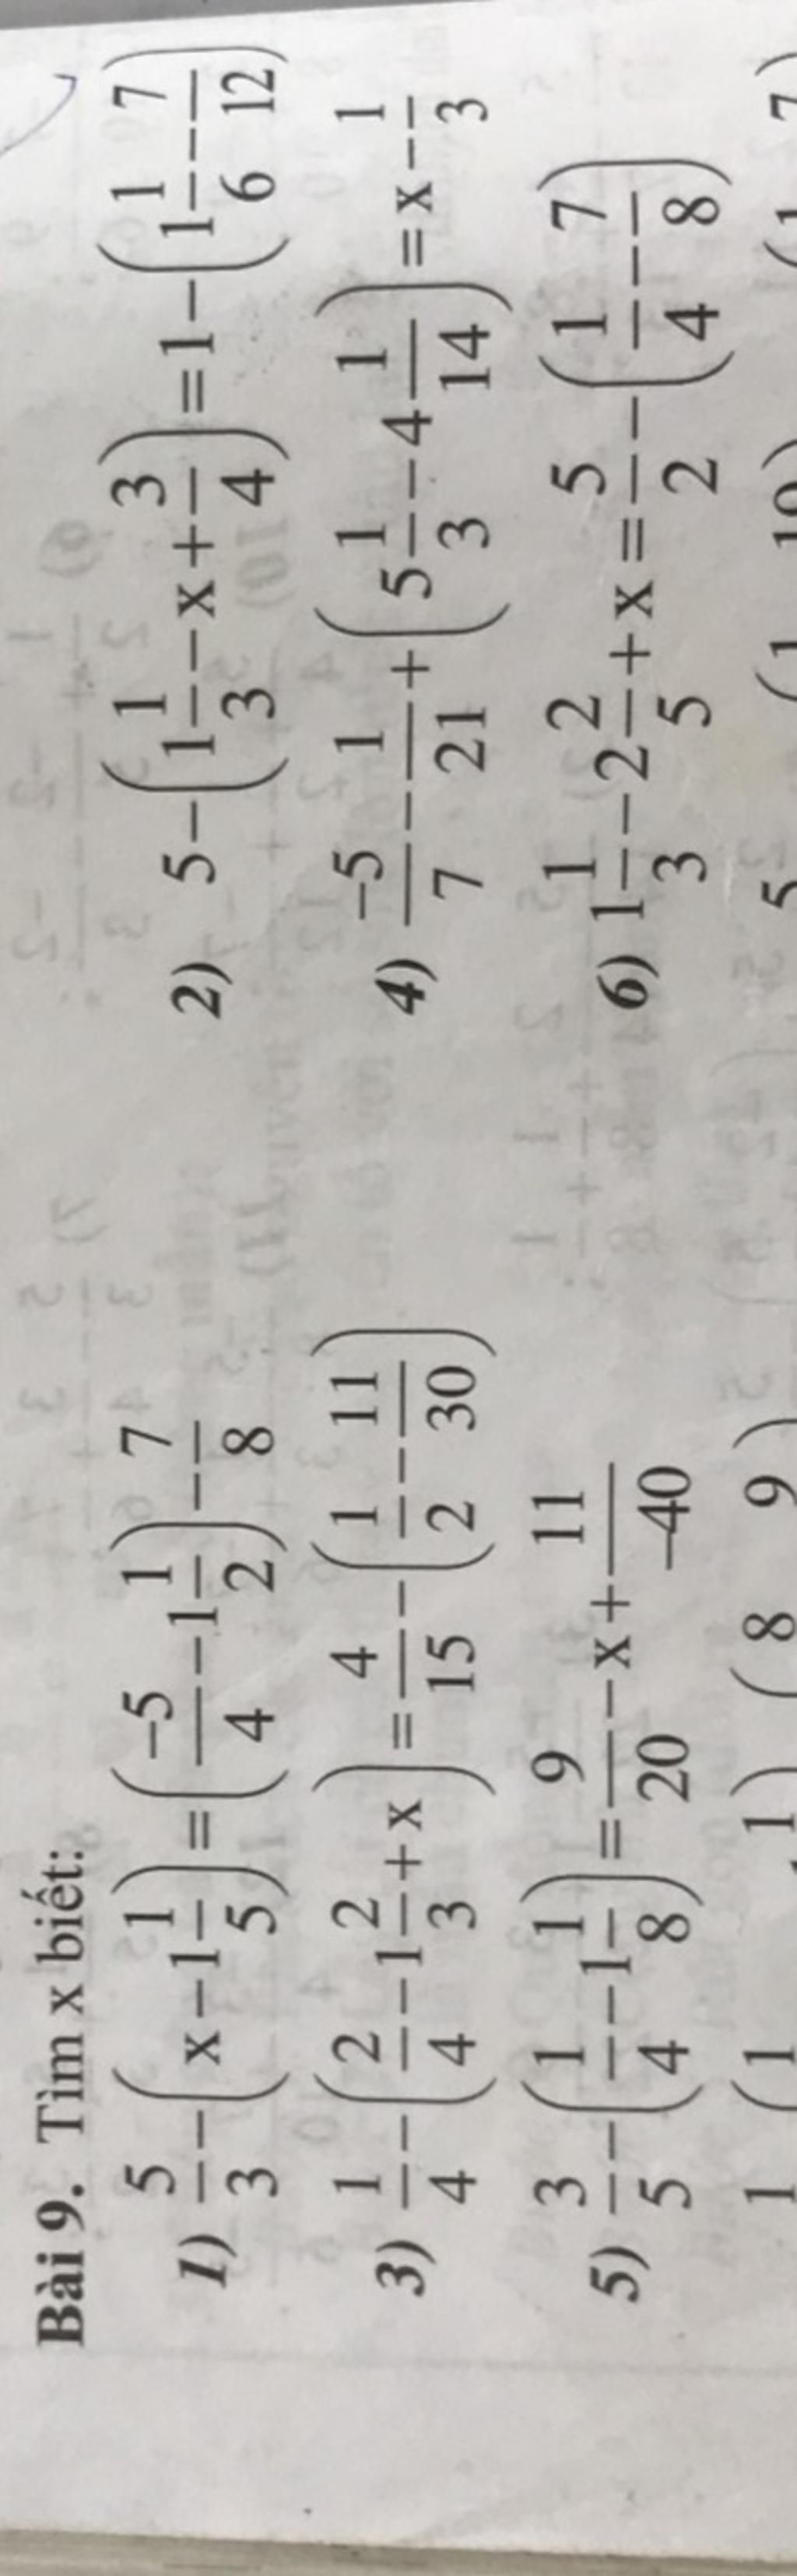 Bài 9. Tìm x biết:
1) 5/3 − (x − 1 1/5) = (−5/4 − 1 1/2) − 7/8
2) 5 − (1 1/3 − x + 3/4) = 1 − (1 1/6 − 7/12)
3) 1/4 − (2/4 − 1 2/3 + x) = 4/15 − (1/2 − 11/30)
4) −5/7 − 1/21 + (5 1/3 − 4 1/14) = x − 1/3
5) 3/5 − (1/4 − 1 1/8) = 9/20 − x + 11/−40
6) 1 1/3 − 2 2/5 + x = 5/2 − (1/4 − 7/8)